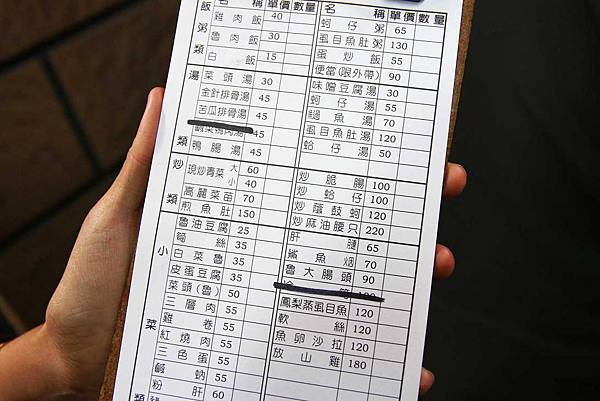 名 稱 單價 數量
雞肉飯 40
魯肉飯 30
白飯 15
飯粥類
菜頭湯 30
金針排骨湯 45
苦瓜排骨湯 45
鹹菜鴨肉湯 45
鴨腸湯 45
湯類
現炒青菜 大 60
小 40
高麗菜苗 70
煎魚肚 150
炒類
魯油豆腐 25
筍絲 35
白菜魯 35
皮蛋豆腐 35
菜頭(魯) 50
三層肉 55
雞卷 55
紅燒肉 55
三色蛋 55
鹹蚋 55
粉肝 60
小菜類
名 稱 單價 數量
蚵仔粥 65
虱目魚肚粥 130
蛋炒飯 55
便當(限外帶) 90
味噌豆腐湯 30
蚵仔湯 55
魚湯 70
虱目魚肚湯 120
蛤仔湯 50
炒脆腸 100
炒蛤仔 100
炒蔭鼓蚵 120
炒麻油腰只 220
肝腱 65
鯊魚烟 70
魯大腸頭 90
鳳梨蒸虱目魚 120
軟絲 120
魚卵沙拉 120
放山雞 180